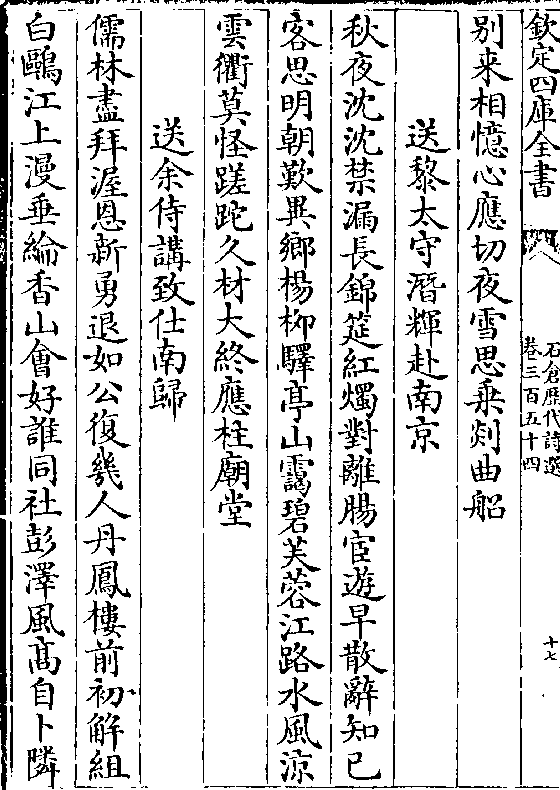 欽定四庫全書
石倉歷代詩選
卷三百五十四
十七
别来相憶心應切夜雪思乗剡曲船
送黎太守潛輝赴南京
秋夜沈沈禁漏長錦筵紅燭對離腸宦遊早散辭知已
客思明朝歎異鄉楊柳驛亭山靄碧芙蓉江路水風涼
雲衢莫怪蹉跎久材大終應柱廟堂
送余侍講致仕南歸
儒林盡拜渥恩新勇退如公復幾人丹鳳樓前初解組
白鷗江上漫垂綸香山會好誰同社彭澤風髙自卜隣